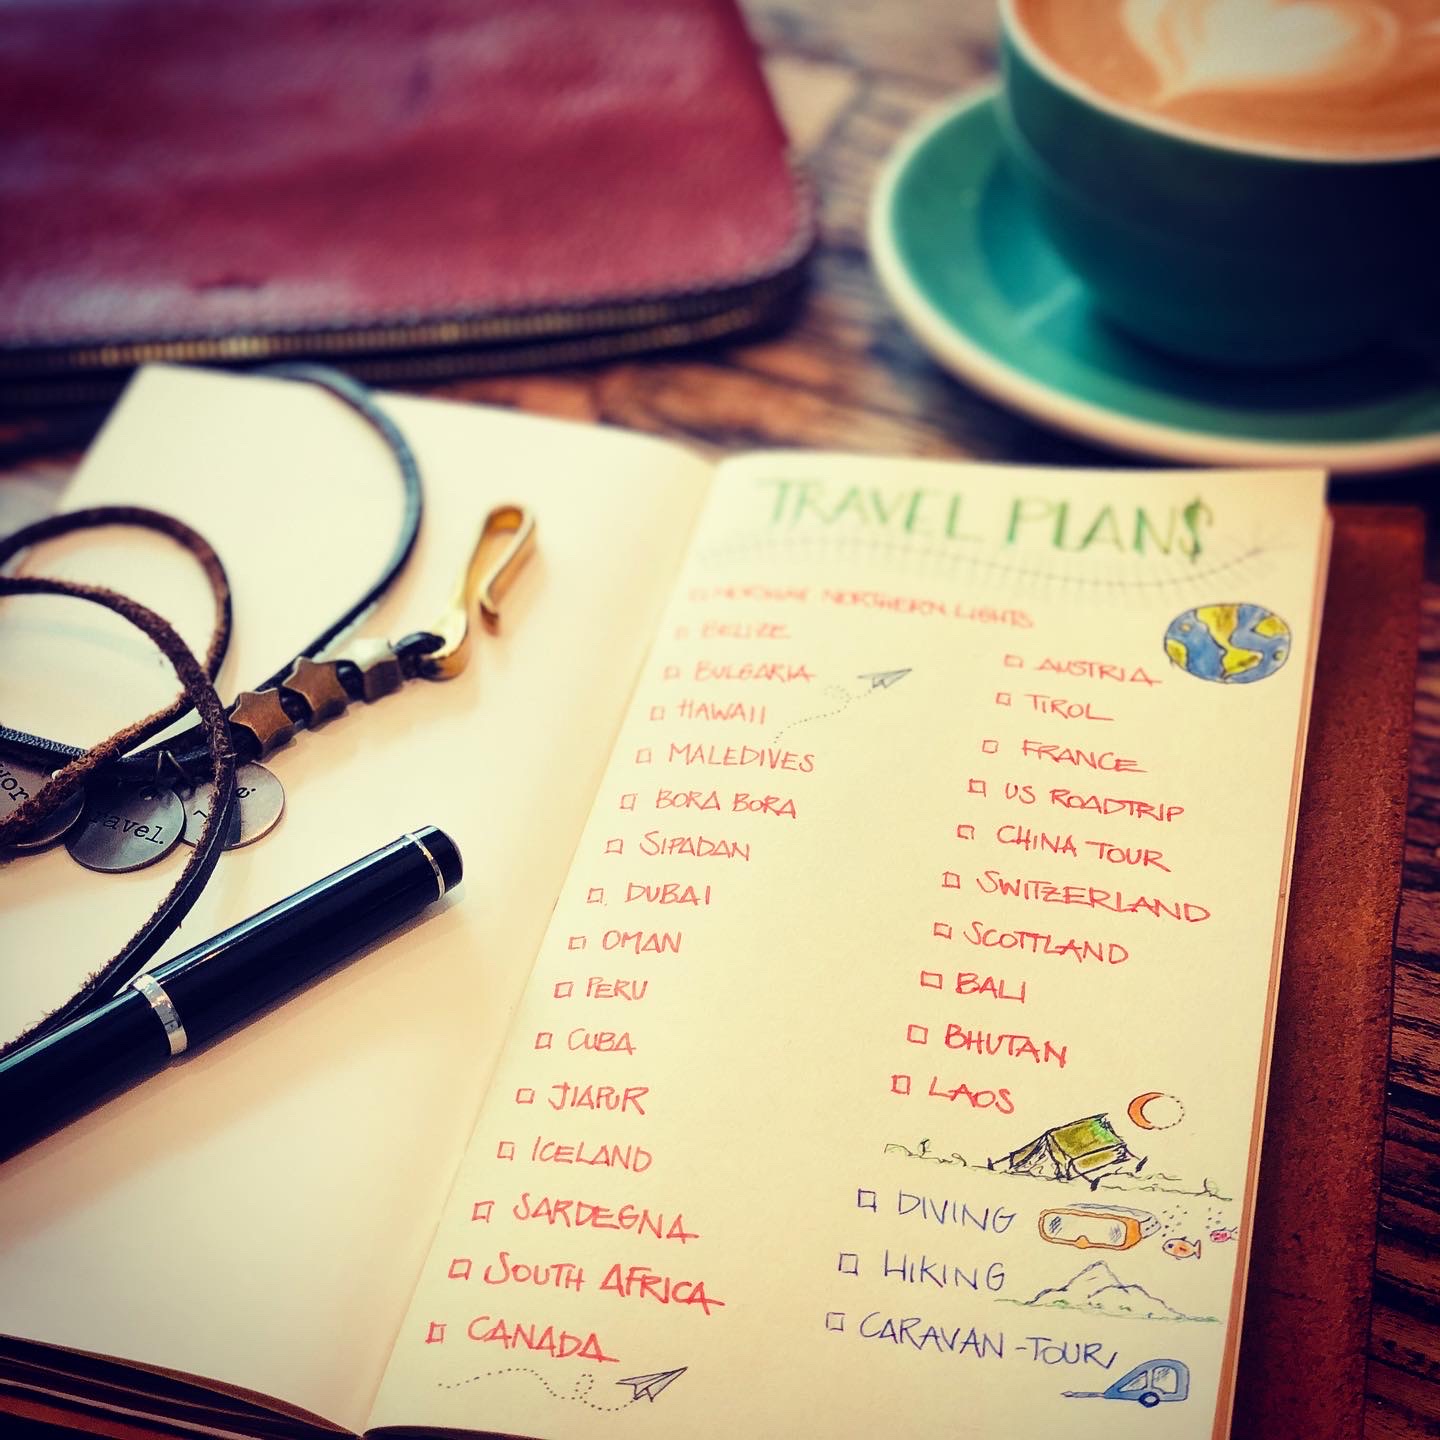 TRAVEL PLAN$
NORWAY NORTHERN LIGHTS
BELIZE
BULGARIA
HAWAII
MALEDIVES
BORA BORA
SIPADAN
DUBAI
OMAN
PERU
CUBA
JIAPUR
ICELAND
SARDEGNA
SOUTH AFRICA
CANADA
AUSTRIA
TIROL
FRANCE
US ROADTRIP
CHINA TOUR
SWITZERLAND
SCOTTLAND
BALI
BHUTAN
LAOS
DIVING
HIKING
CARAVAN-TOUR
travel.